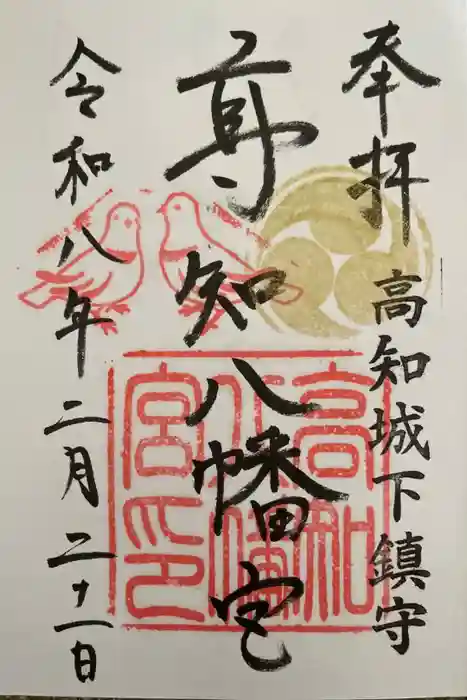 奉拝
高知城下鎮守
高知八幡宮
令和八年二月二十一日
高知
八幡
宮印